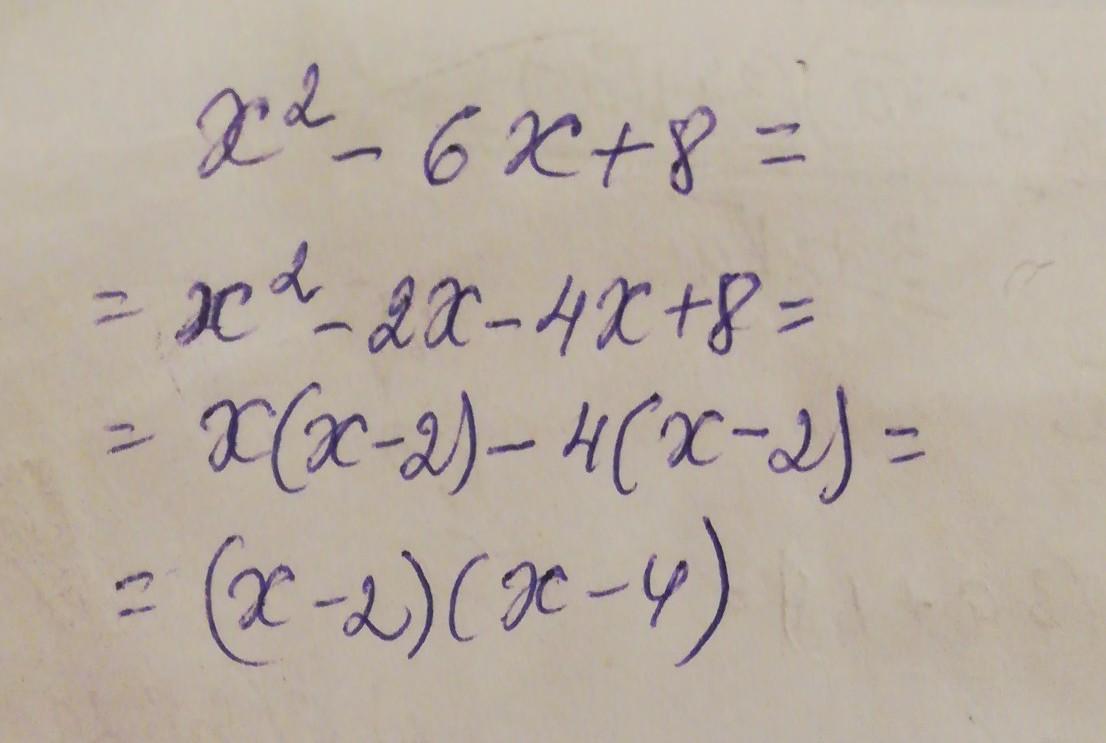 x² - 6x + 8 =
= x² - 2x - 4x + 8 =
= x(x - 2) - 4(x - 2) =
= (x - 2)(x - 4)